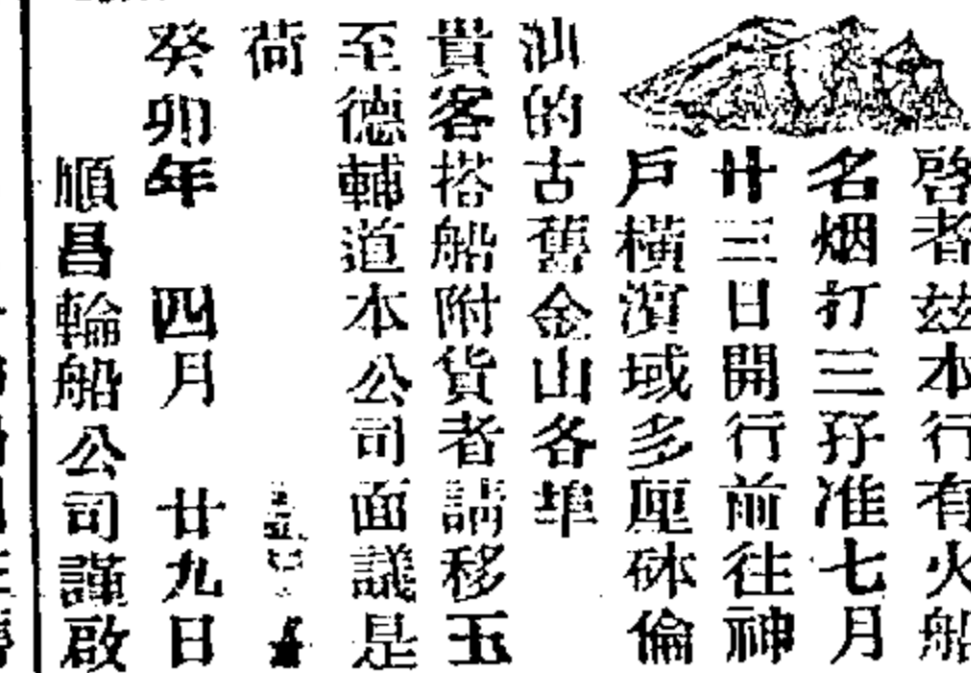 啓者玆本行有火船
名烟打三孖准七月
廿三日開行前往神
戶橫濱域多厘砵倫
汕的古舊金山各埠
貴客搭船附貨者請移玉
至德輔道本公司面議是
荷
癸卯年四月廿九日
順昌輪船公司謹啟